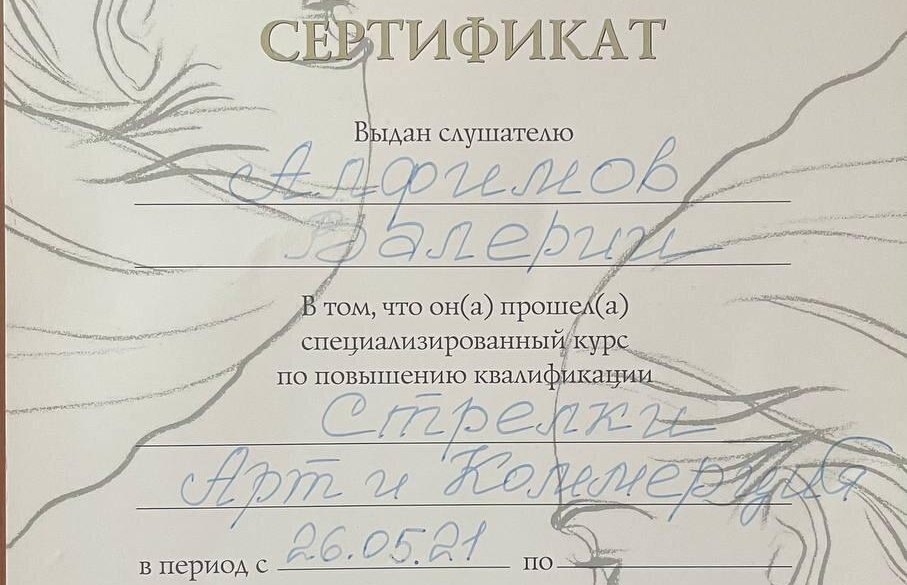 СЕРТИФИКАТ
Выдан слушателю
Алфимов
Валерий
В том, что он(а) прошел(а)
специализированный курс
по повышению квалификации
Стрелки
Арт и Коммерция
в период с 26.05.21 по